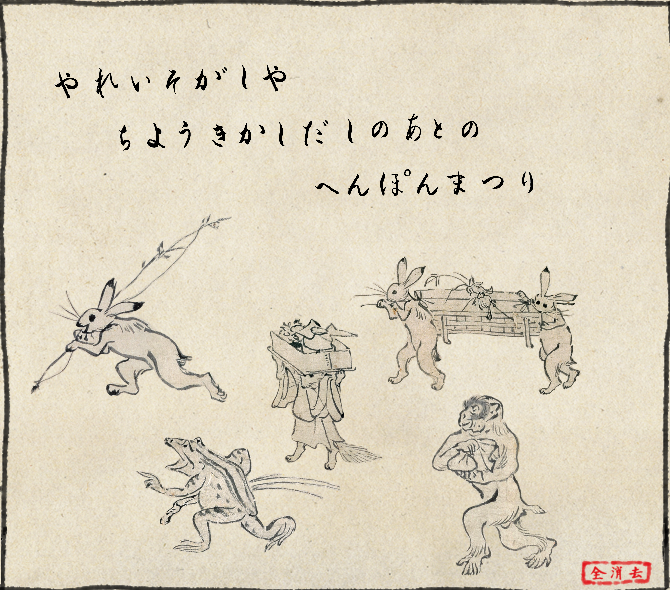 やれいそがしや
ちようきかしだしのあとの
へんぽんまつり
全消去